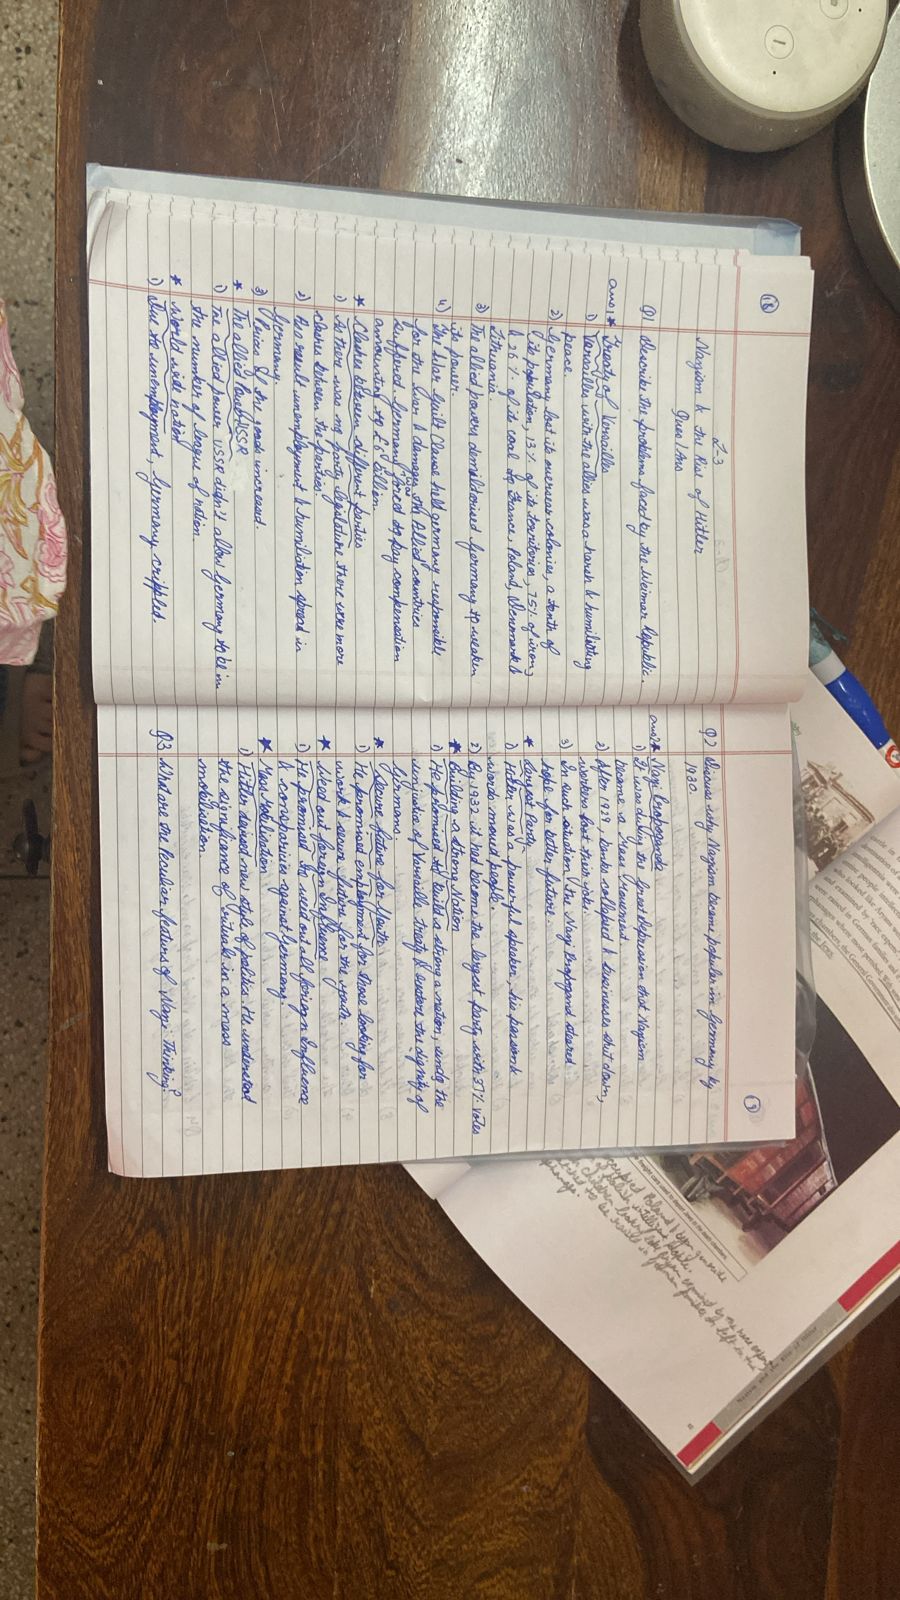 18
L-3
Nazism & the Rise of Hitler
Ques/Ans
Q1 Describe the problems faced by the Weimar Republic.
ans1 * Treaty of Versailles
1) Varsailles with the allies was a harsh & humiliating
peace.
2) Germany lost its overseas colonies, a tenth of
its population, 13% of its territories, 75% of iron,
& 26% of its coal to France, Poland, Denmark &
Lithuania.
3) The allied powers demildorised Germany to weaken
its power.
4) The War Guilt Clause held germany responsible
for the war & damages the Allied countries
suffered. Germany was forced to pay compensation
amounting to £6 billion.
* Clashes between different parties
1) As there was no party legislature there were more
clashes between the parties.
2) As a result unemployment & humiliation spread in
Germany.
3) Prices of the goods increased.
* The allied Power USSR
1) The allied power USSR didn't allow Germany to be in
the number of league of nation.
* World wide nation
1) Due to unemployment, Germany crippled.
19
Q2 Discuss why Nazism became popular in Germany by
1930.
ans2 * Nazi Propoganda
1) It was during the Great Depression that Nazism
became a Mass Movement.
2) After 1929, banks collapsed & businesses shut down,
workers lost their jobs.
3) In such situation the Nazi Propogand steared
hope for better future.
* Largest Party
1) Hitler was a powerful speaker, his passion &
words moved people.
2) By 1932 it had become the largest party with 37% votes
* Building a strong Nation
1) He promised to build a strong a nation, undo the
unjustice of Varsaille treaty & restore the dignity of
Germans.
* Secure future for Youth
1) He promised employment for those looking for
work & secure future for the youth.
* Weed out foreign Influence
1) He promised to weed out all foriegn Influence
& consparicies against Germany.
* Mass Mobilisation
1) Hitler devised new style of politics. He understood
the significance of rituals in a mass
mobilisation.
Q3 What are the Peculiar featurs of Nazi Thinking?